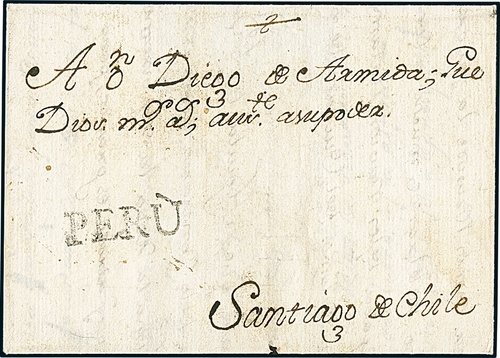 A Dn Diego de Armida, Gue
Dios ms as, aus.te a su poder.
PERÙ
Santiago de Chile